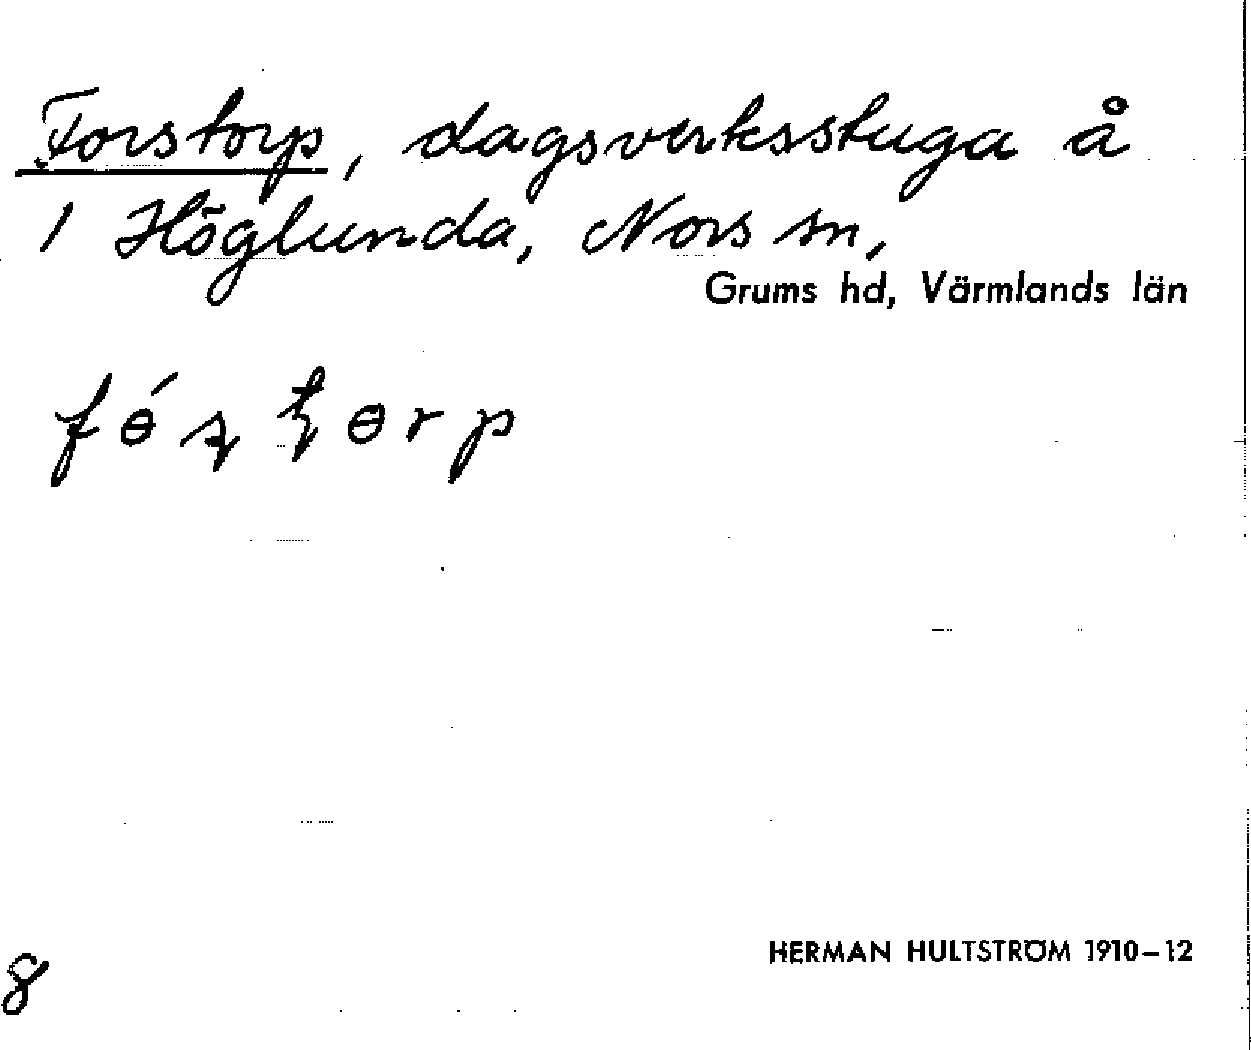 Forstorp, dagsverksstuga å
1 Höglunda, Nors sn,
Grums hd, Värmlands län
fɵ́ʂʈɵrp
HERMAN HULTSTRÖM 1910–12
8